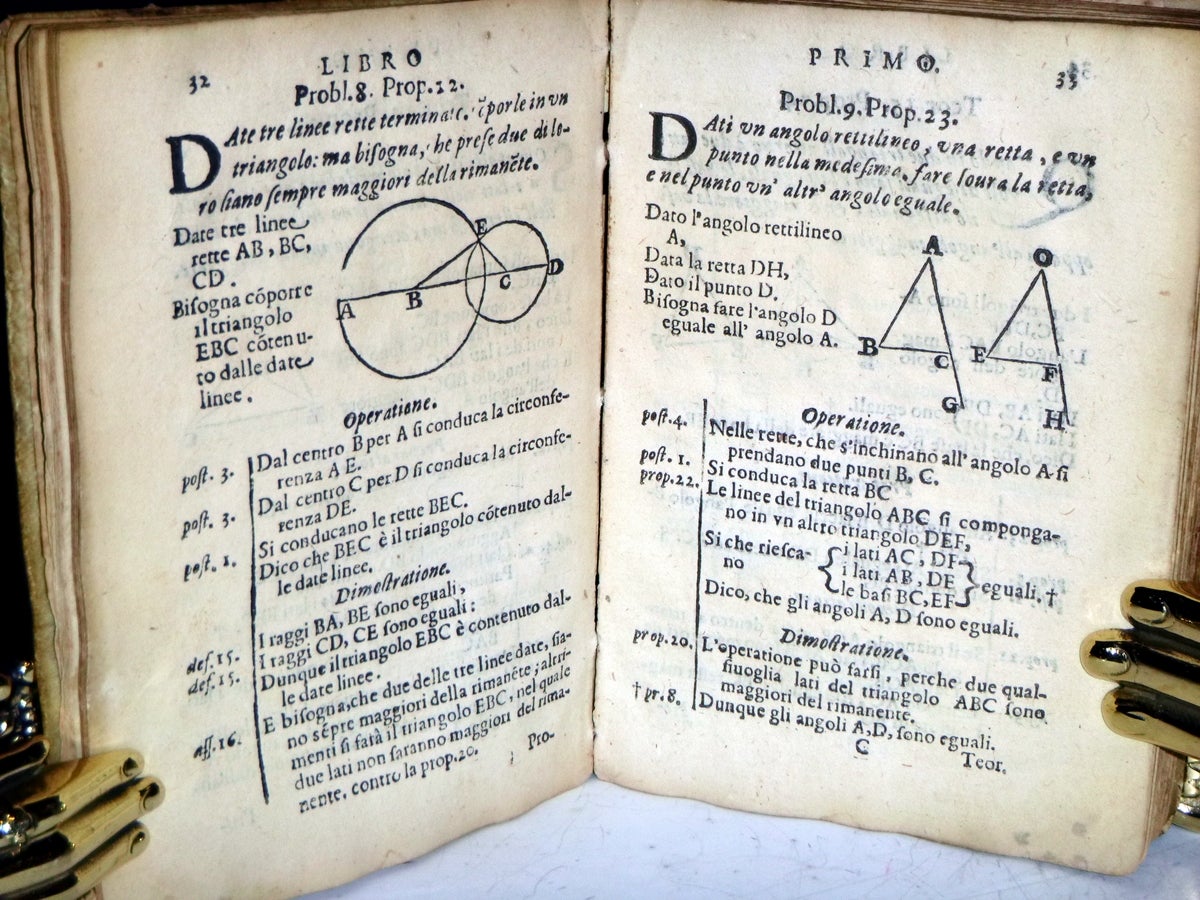 32
LIBRO
Probl.8. Prop.22.
DAte tre linee rette terminate. cõporle in vn
triangolo: ma bisogna, che prese due di lo-
ro siano sempre maggiori della rimanẽte.
Date tre linee
rette AB, BC,
CD.
Bisogna cõporre
il triangolo
EBC cõtenu-
to dalle date
linee.
A
B
E
C
D
Operatione.
post. 3.
Dal centro B per A si conduca la circonfe-
renza A E.
post. 3.
Dal centro C per D si conduca la circonfe-
renza DE.
post. 1.
Si conducano le rette BEC.
Dico che BEC è il triangolo cõtenuto dal-
le date linee.
Dimostratione.
def. 15.
I raggi BA, BE sono eguali,
def. 15.
I raggi CD, CE sono eguali:
Dunque il triangolo EBC è contenuto dal-
le date linee.
E bisogna, che due delle tre linee date, sia-
ass. 16.
no sẽpre maggiori della rimanẽte; altri-
menti si farà il triangolo EBC, nel quale
due lati non saranno maggiori del rima-
nente. contro la prop.20.
Pro-
PRIMO.
33
Probl.9. Prop.23.
DAti vn angolo rettilineo, vna retta, e vn
punto nella medesima, fare soura la retta,
e nel punto vn' altr' angolo eguale.
Dato l'angolo rettilineo
A,
Data la retta DH,
Dato il punto D.
Bisogna fare l'angolo D
eguale all' angolo A.
A
B
C
G
O
E
F
H
Operatione.
post. 4.
Nelle rette, che s'inchinano all' angolo A si
prendano due punti B, C.
post. 1.
Si conduca la retta BC
prop. 22.
Le linee del triangolo ABC si componga-
no in vn altro triangolo DEF,
Si che riesca-
no
i lati AC, DF
i lati AB, DE
le basi BC, EF
eguali. †
Dico, che gli angoli A, D sono eguali.
Dimostratione.
prop. 20.
L'operatione può farsi, perche due qual-
siuoglia lati del triangolo ABC sono
maggiori del rimanente.
† pr. 8.
Dunque gli angoli A, D, sono eguali.
C
Teor.